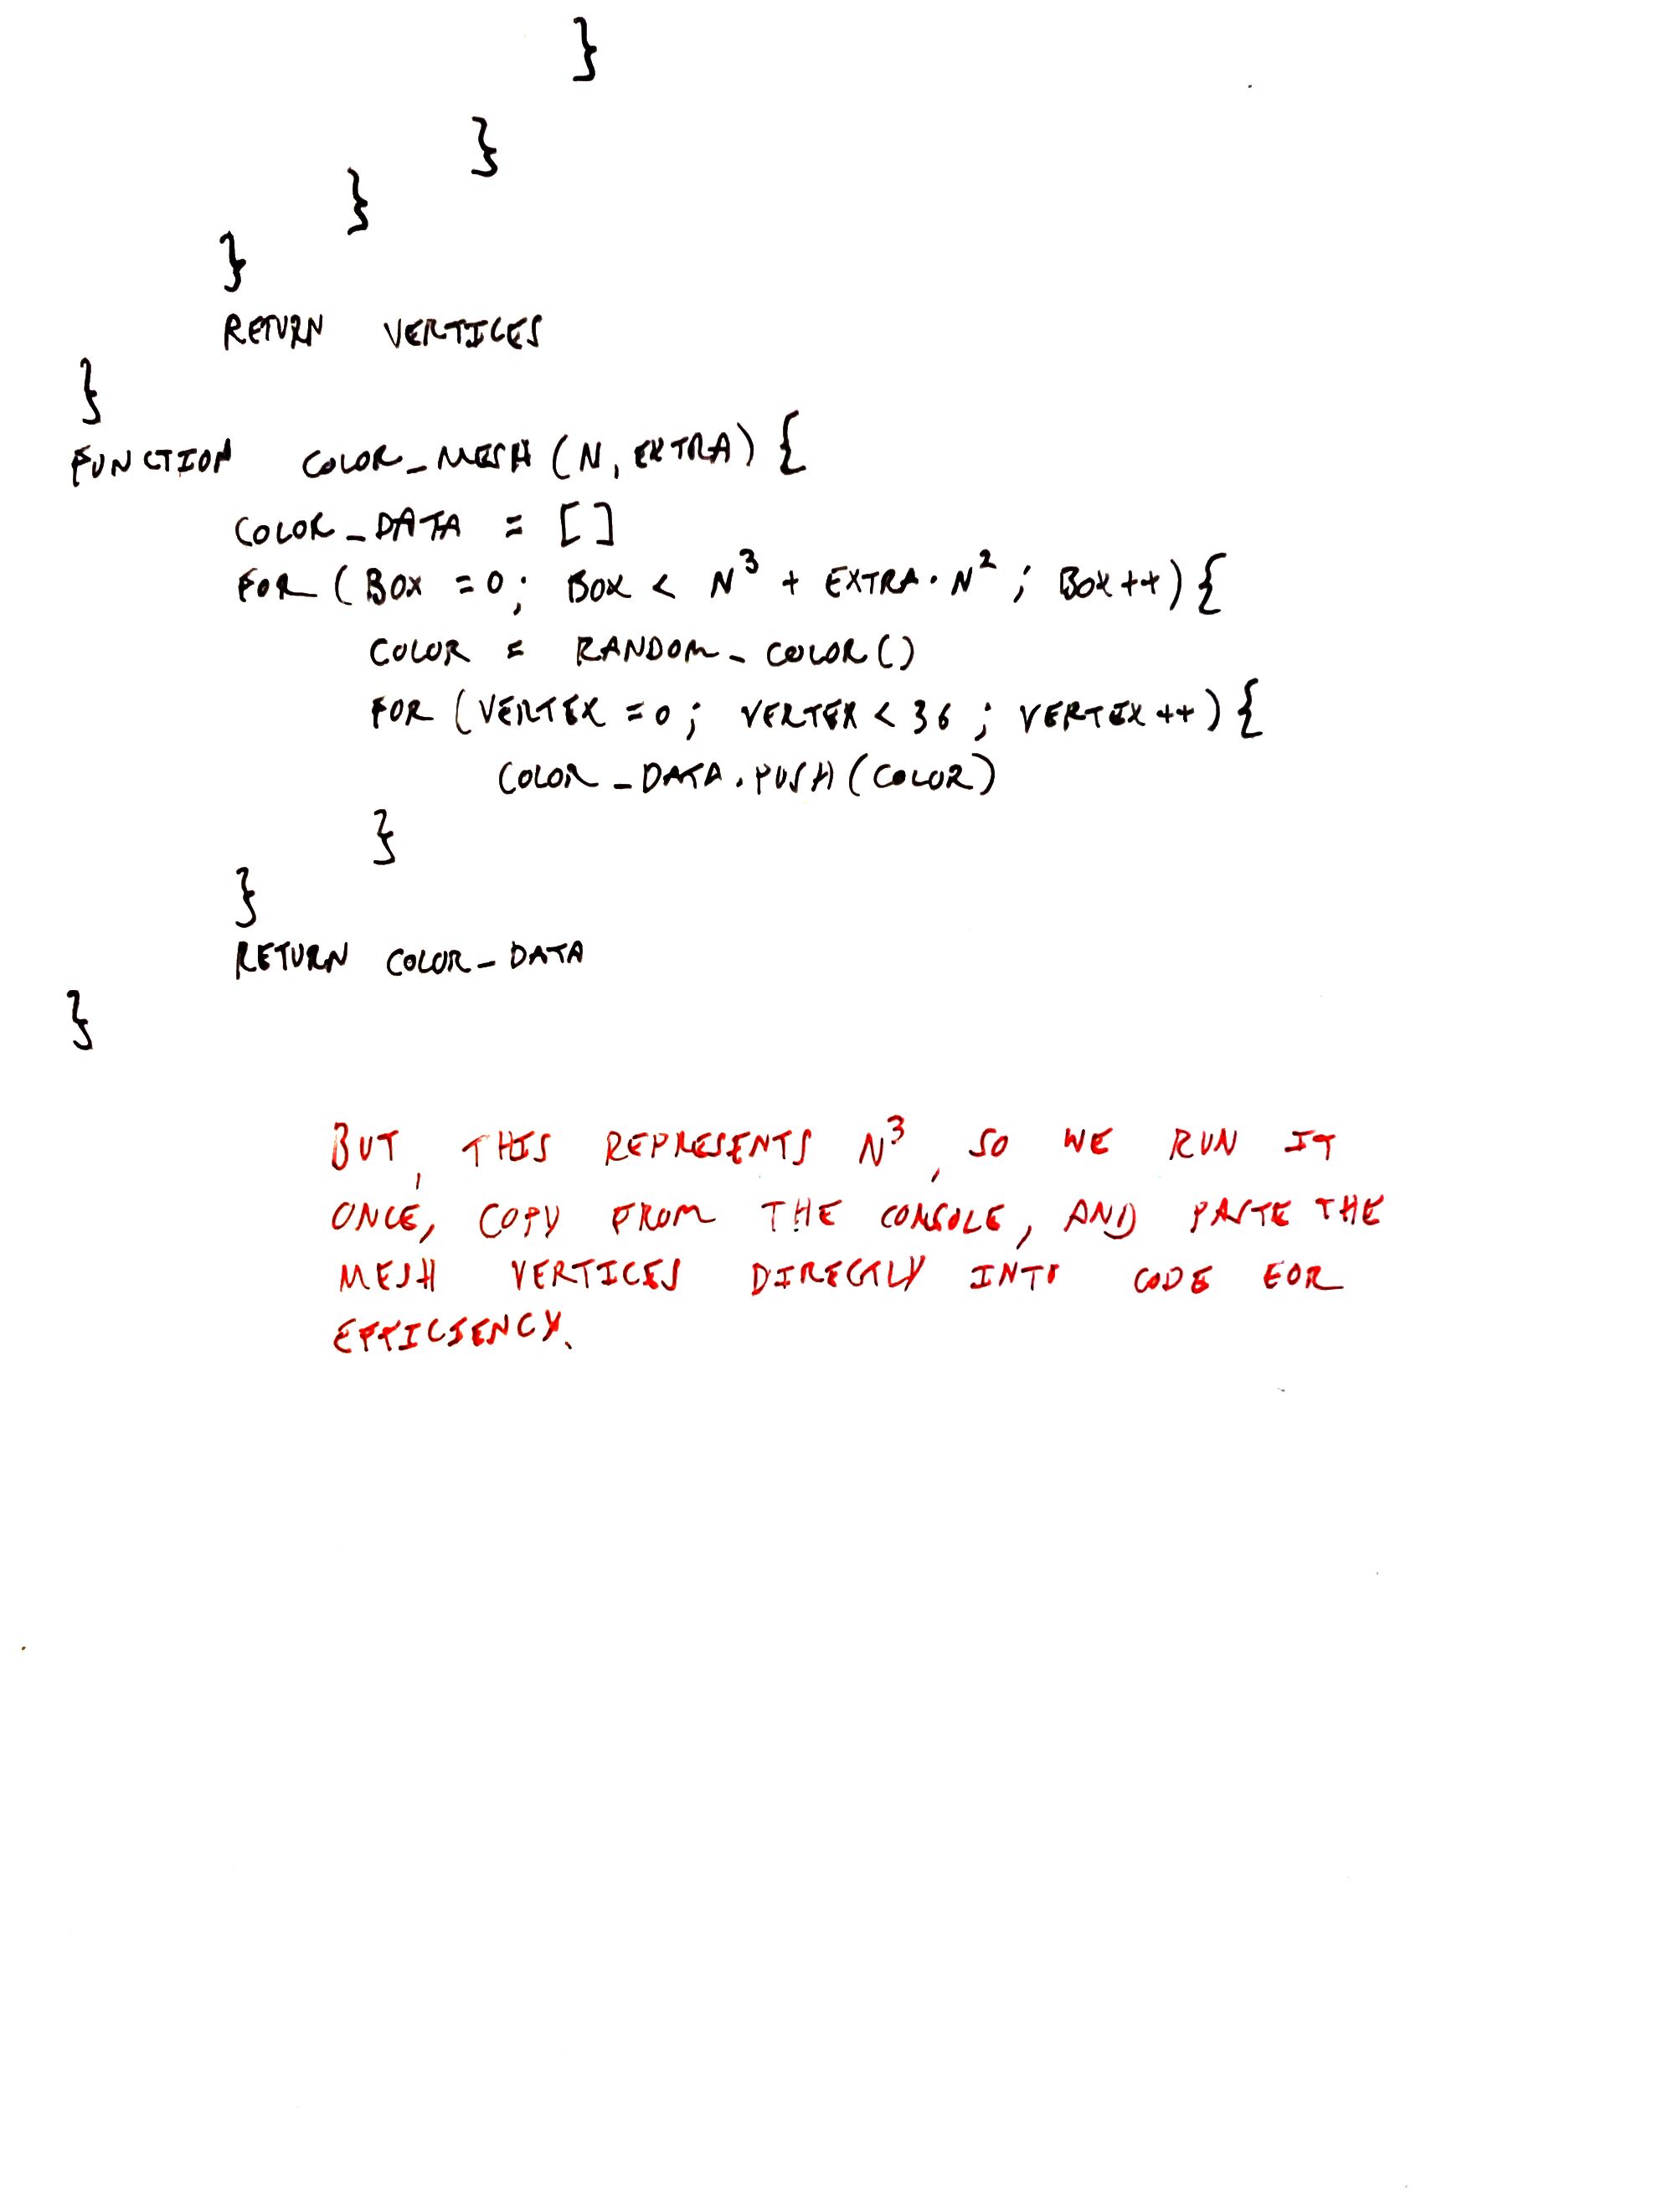 }
}
}
}
RETURN VERTICES
}
FUNCTION COLOR_MESH (N, EXTRA) {
COLOR_DATA = []
FOR (BOX = 0; BOX < N³ + EXTRA · N² ; BOX ++) {
COLOR = RANDOM_COLOR()
FOR (VERTEX = 0 ; VERTEX < 36 ; VERTEX ++) {
COLOR_DATA.PUSH (COLOR)
}
}
RETURN COLOR_DATA
}
BUT, THIS REPRESENTS N³, SO WE RUN IT
ONCE, COPY FROM THE CONSOLE, AND PASTE THE
MESH VERTICES DIRECTLY INTO CODE FOR
EFFICIENCY.